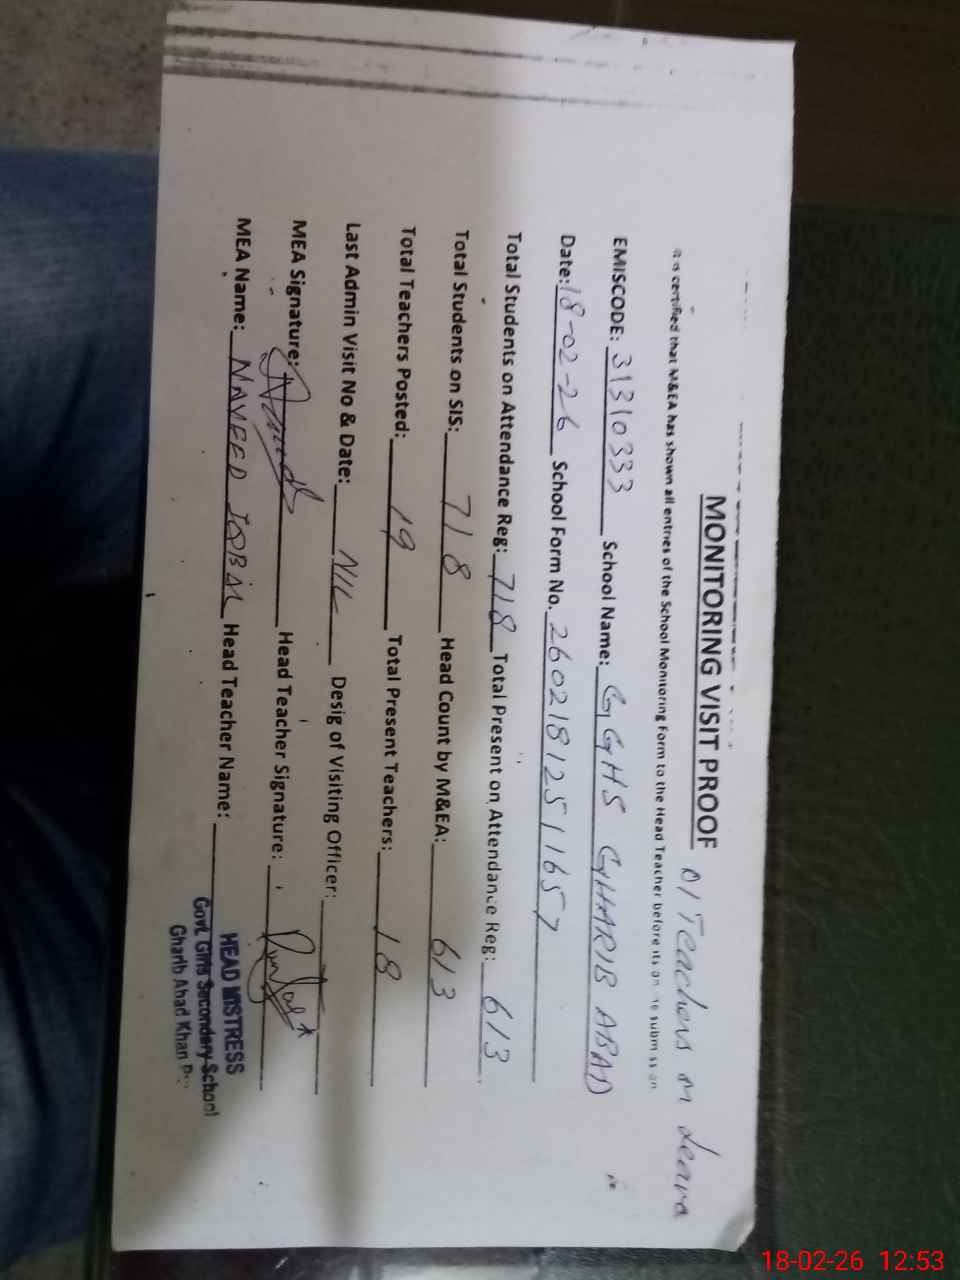 MONITORING VISIT PROOF
01 Teachers on Leave
It is certified that M&EA has shown all entries of the School Monitoring Form to the Head Teacher before its
EMISCODE: 31310333 School Name: GGHS GHARIB ABAD
Date: 18-02-26 School Form No. 260218125 1165
Total Students on Attendance Reg: 718 Total Present on Attendance Reg: 613
Total Students on SIS: 718 Head Count by M&EA: 613
Total Teachers Posted: 19 Total Present Teachers: 18
Last Admin Visit No & Date: NIL Desig of Visiting Officer:
MEA Signature: Head Teacher Signature:
MEA Name: NAVEED IQBAL Head Teacher Name:
HEAD MISTRESS
Govt. Girls Secondary School
Gharib Abad Khan
18-02-26 12:53